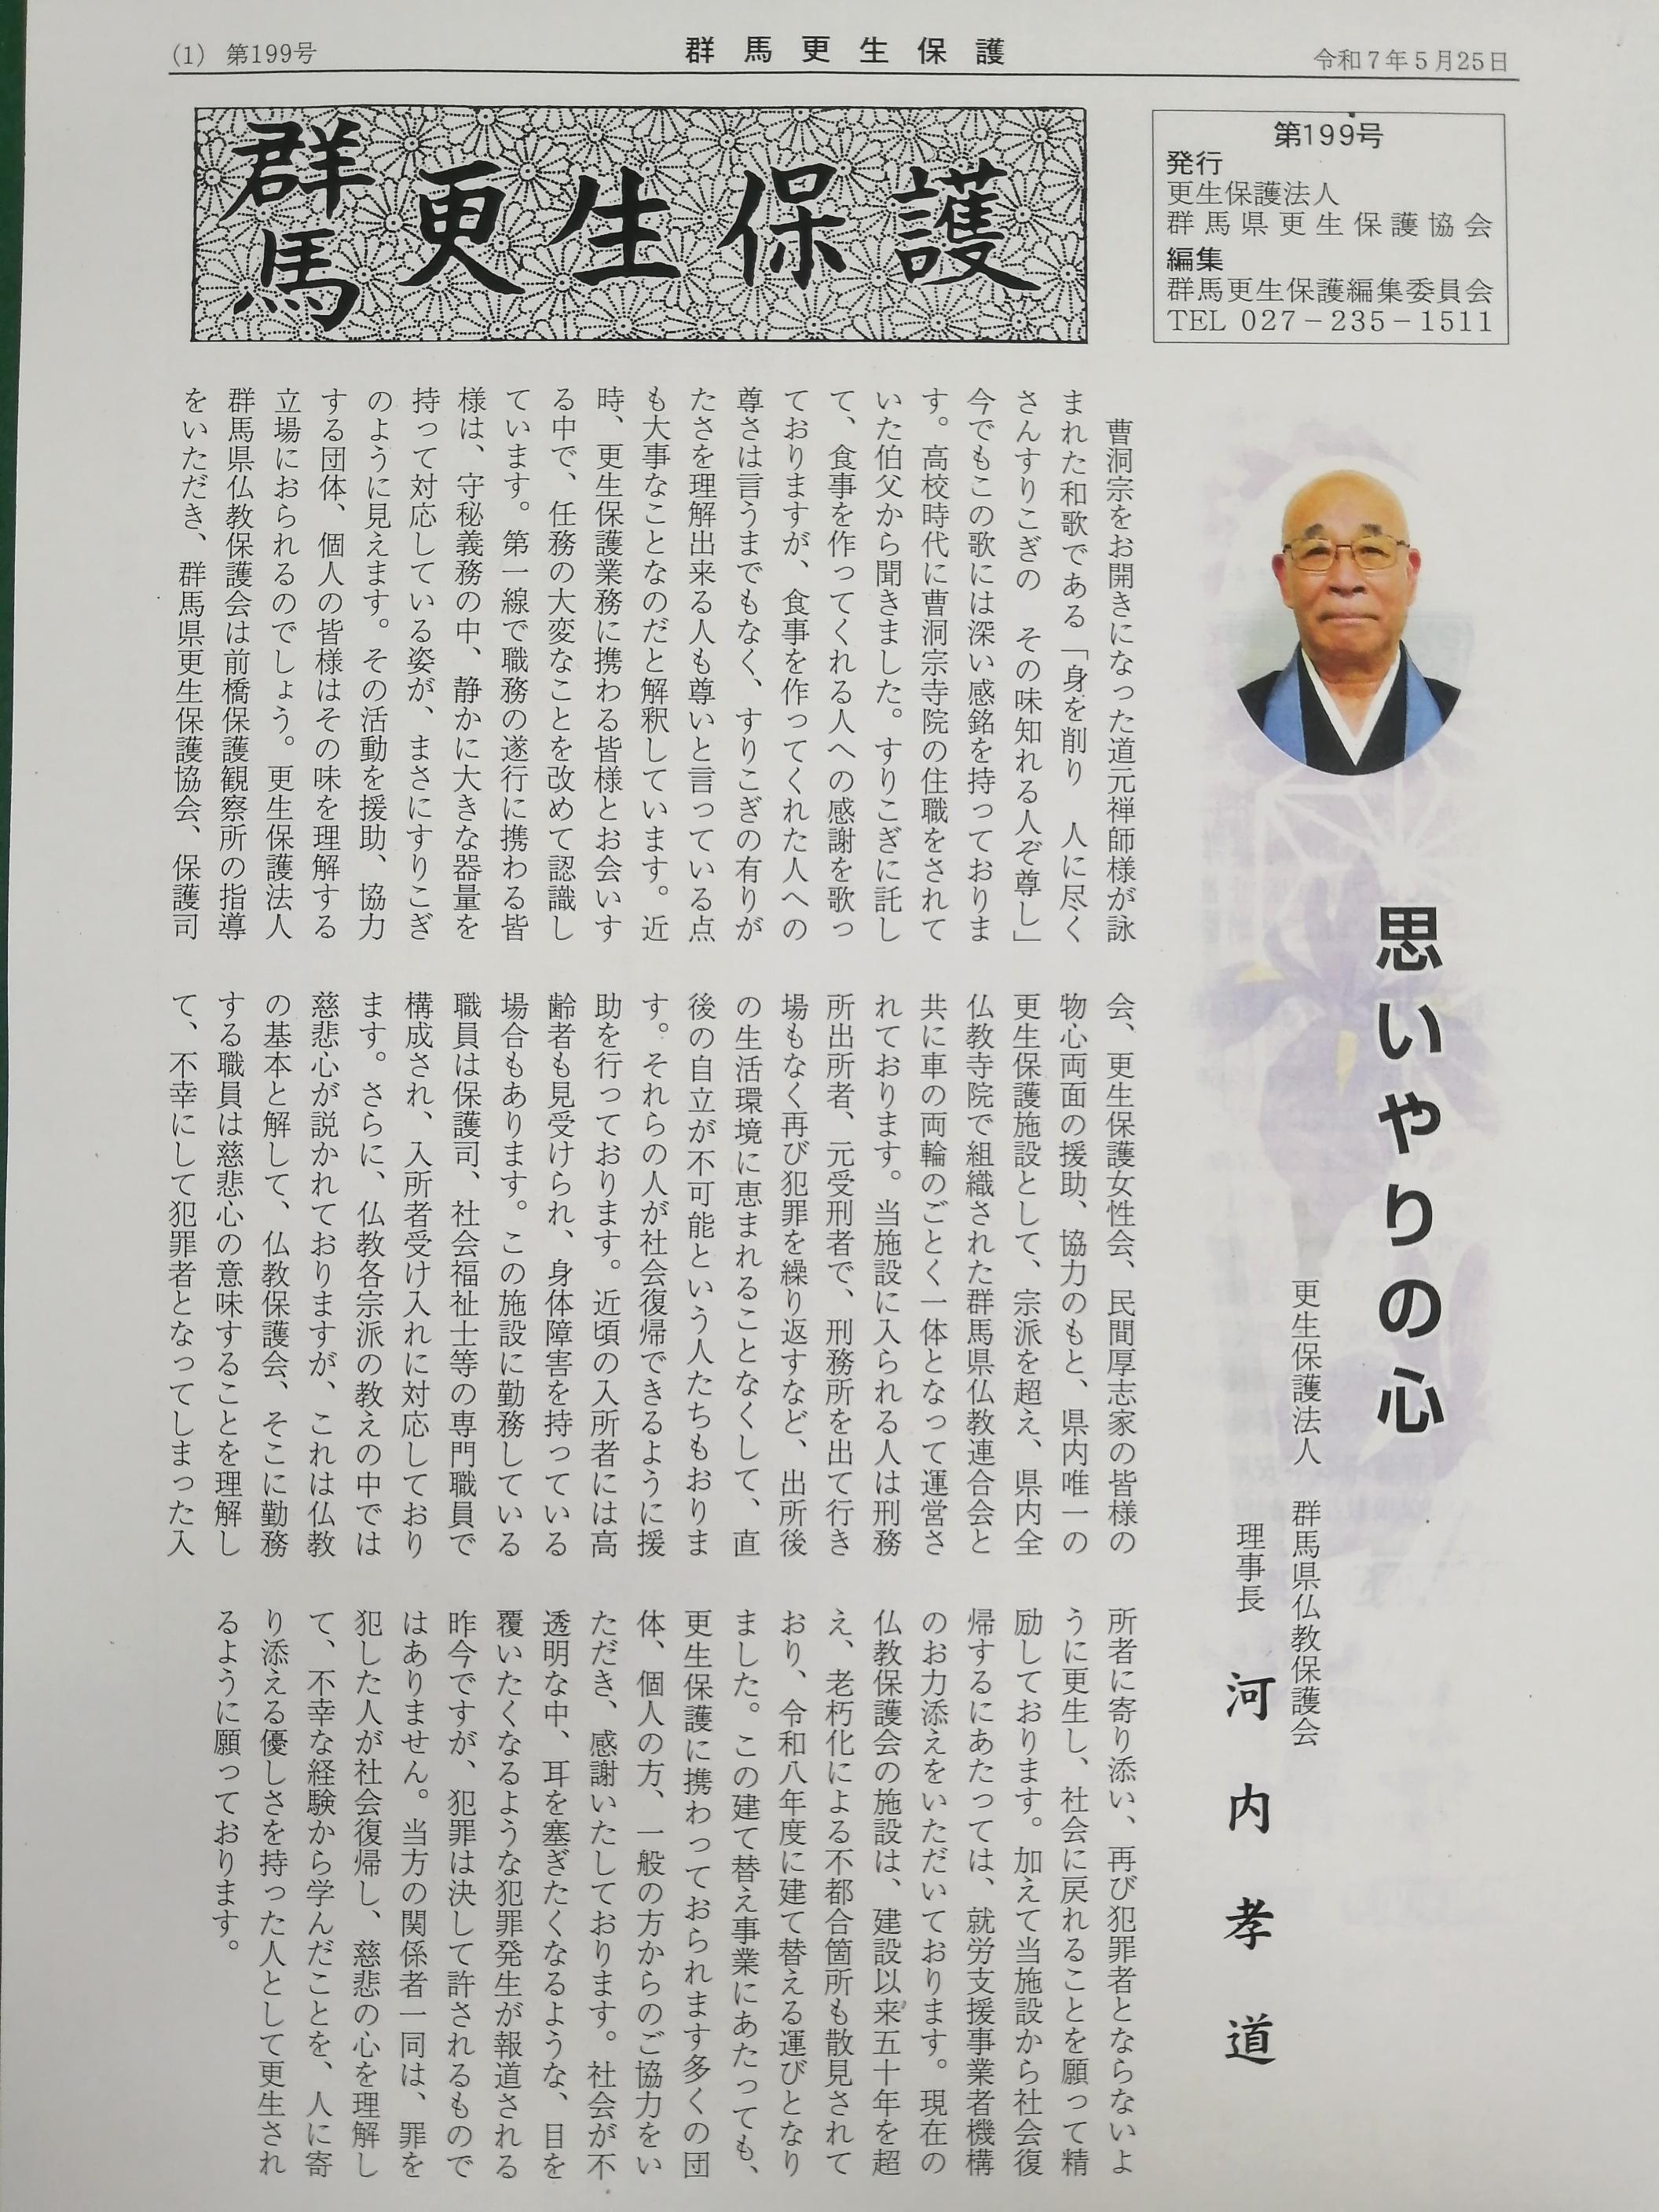 (1) 第199号
群馬更生保護
令和7年5月25日
群馬更生保護
第199号
発行
更生保護法人
群馬県更生保護協会
編集
群馬更生保護編集委員会
TEL 027－235－1511
思いやりの心
更生保護法人　群馬県仏教保護会
理事長　河内孝道
曹洞宗をお開きになった道元禅師様が詠
まれた和歌である「身を削り　人に尽く
さんすりこぎの　その味知れる人ぞ尊し」
今でもこの歌には深い感銘を持っておりま
す。高校時代に曹洞宗寺院の住職をされて
いた伯父から聞きました。すりこぎに託し
て、食事を作ってくれる人への感謝を歌っ
ておりますが、食事を作ってくれた人への
尊さは言うまでもなく、すりこぎの有りが
たさを理解出来る人も尊いと言っている点
も大事なことなのだと解釈しています。近
時、更生保護業務に携わる皆様とお会いす
る中で、任務の大変なことを改めて認識し
ています。第一線で職務の遂行に携わる皆
様は、守秘義務の中、静かに大きな器量を
持って対応している姿が、まさにすりこぎ
のように見えます。その活動を援助、協力
する団体、個人の皆様はその味を理解する
立場におられるのでしょう。更生保護法人
群馬県仏教保護会は前橋保護観察所の指導
をいただき、群馬県更生保護協会、保護司
会、更生保護女性会、民間厚志家の皆様の
物心両面の援助、協力のもと、県内唯一の
更生保護施設として、宗派を超え、県内全
仏教寺院で組織された群馬県仏教連合会と
共に車の両輪のごとく一体となって運営さ
れております。当施設に入られる人は刑務
所出所者、元受刑者で、刑務所を出て行き
場もなく再び犯罪を繰り返すなど、出所後
の生活環境に恵まれることなくして、直
後の自立が不可能という人たちもおりま
す。それらの人が社会復帰できるように援
助を行っております。近頃の入所者には高
齢者も見受けられ、身体障害を持っている
場合もあります。この施設に勤務している
職員は保護司、社会福祉士等の専門職員で
構成され、入所者受け入れに対応しており
ます。さらに、仏教各宗派の教えの中では
慈悲心が説かれておりますが、これは仏教
の基本と解して、仏教保護会、そこに勤務
する職員は慈悲心の意味することを理解し
て、不幸にして犯罪者となってしまった入
所者に寄り添い、再び犯罪者とならないよ
うに更生し、社会に戻れることを願って精
励しております。加えて当施設から社会復
帰するにあたっては、就労支援事業者機構
のお力添えをいただいております。現在の
仏教保護会の施設は、建設以来五十年を超
え、老朽化による不都合箇所も散見されて
おり、令和八年度に建て替える運びとなり
ました。この建て替え事業にあたっても、
更生保護に携わっておられます多くの団
体、個人の方、一般の方からのご協力をい
ただき、感謝いたしております。社会が不
透明な中、耳を塞ぎたくなるような、目を
覆いたくなるような犯罪発生が報道される
昨今ですが、犯罪は決して許されるもので
はありません。当方の関係者一同は、罪を
犯した人が社会復帰し、慈悲の心を理解し
て、不幸な経験から学んだことを、人に寄
り添える優しさを持った人として更生され
るように願っております。